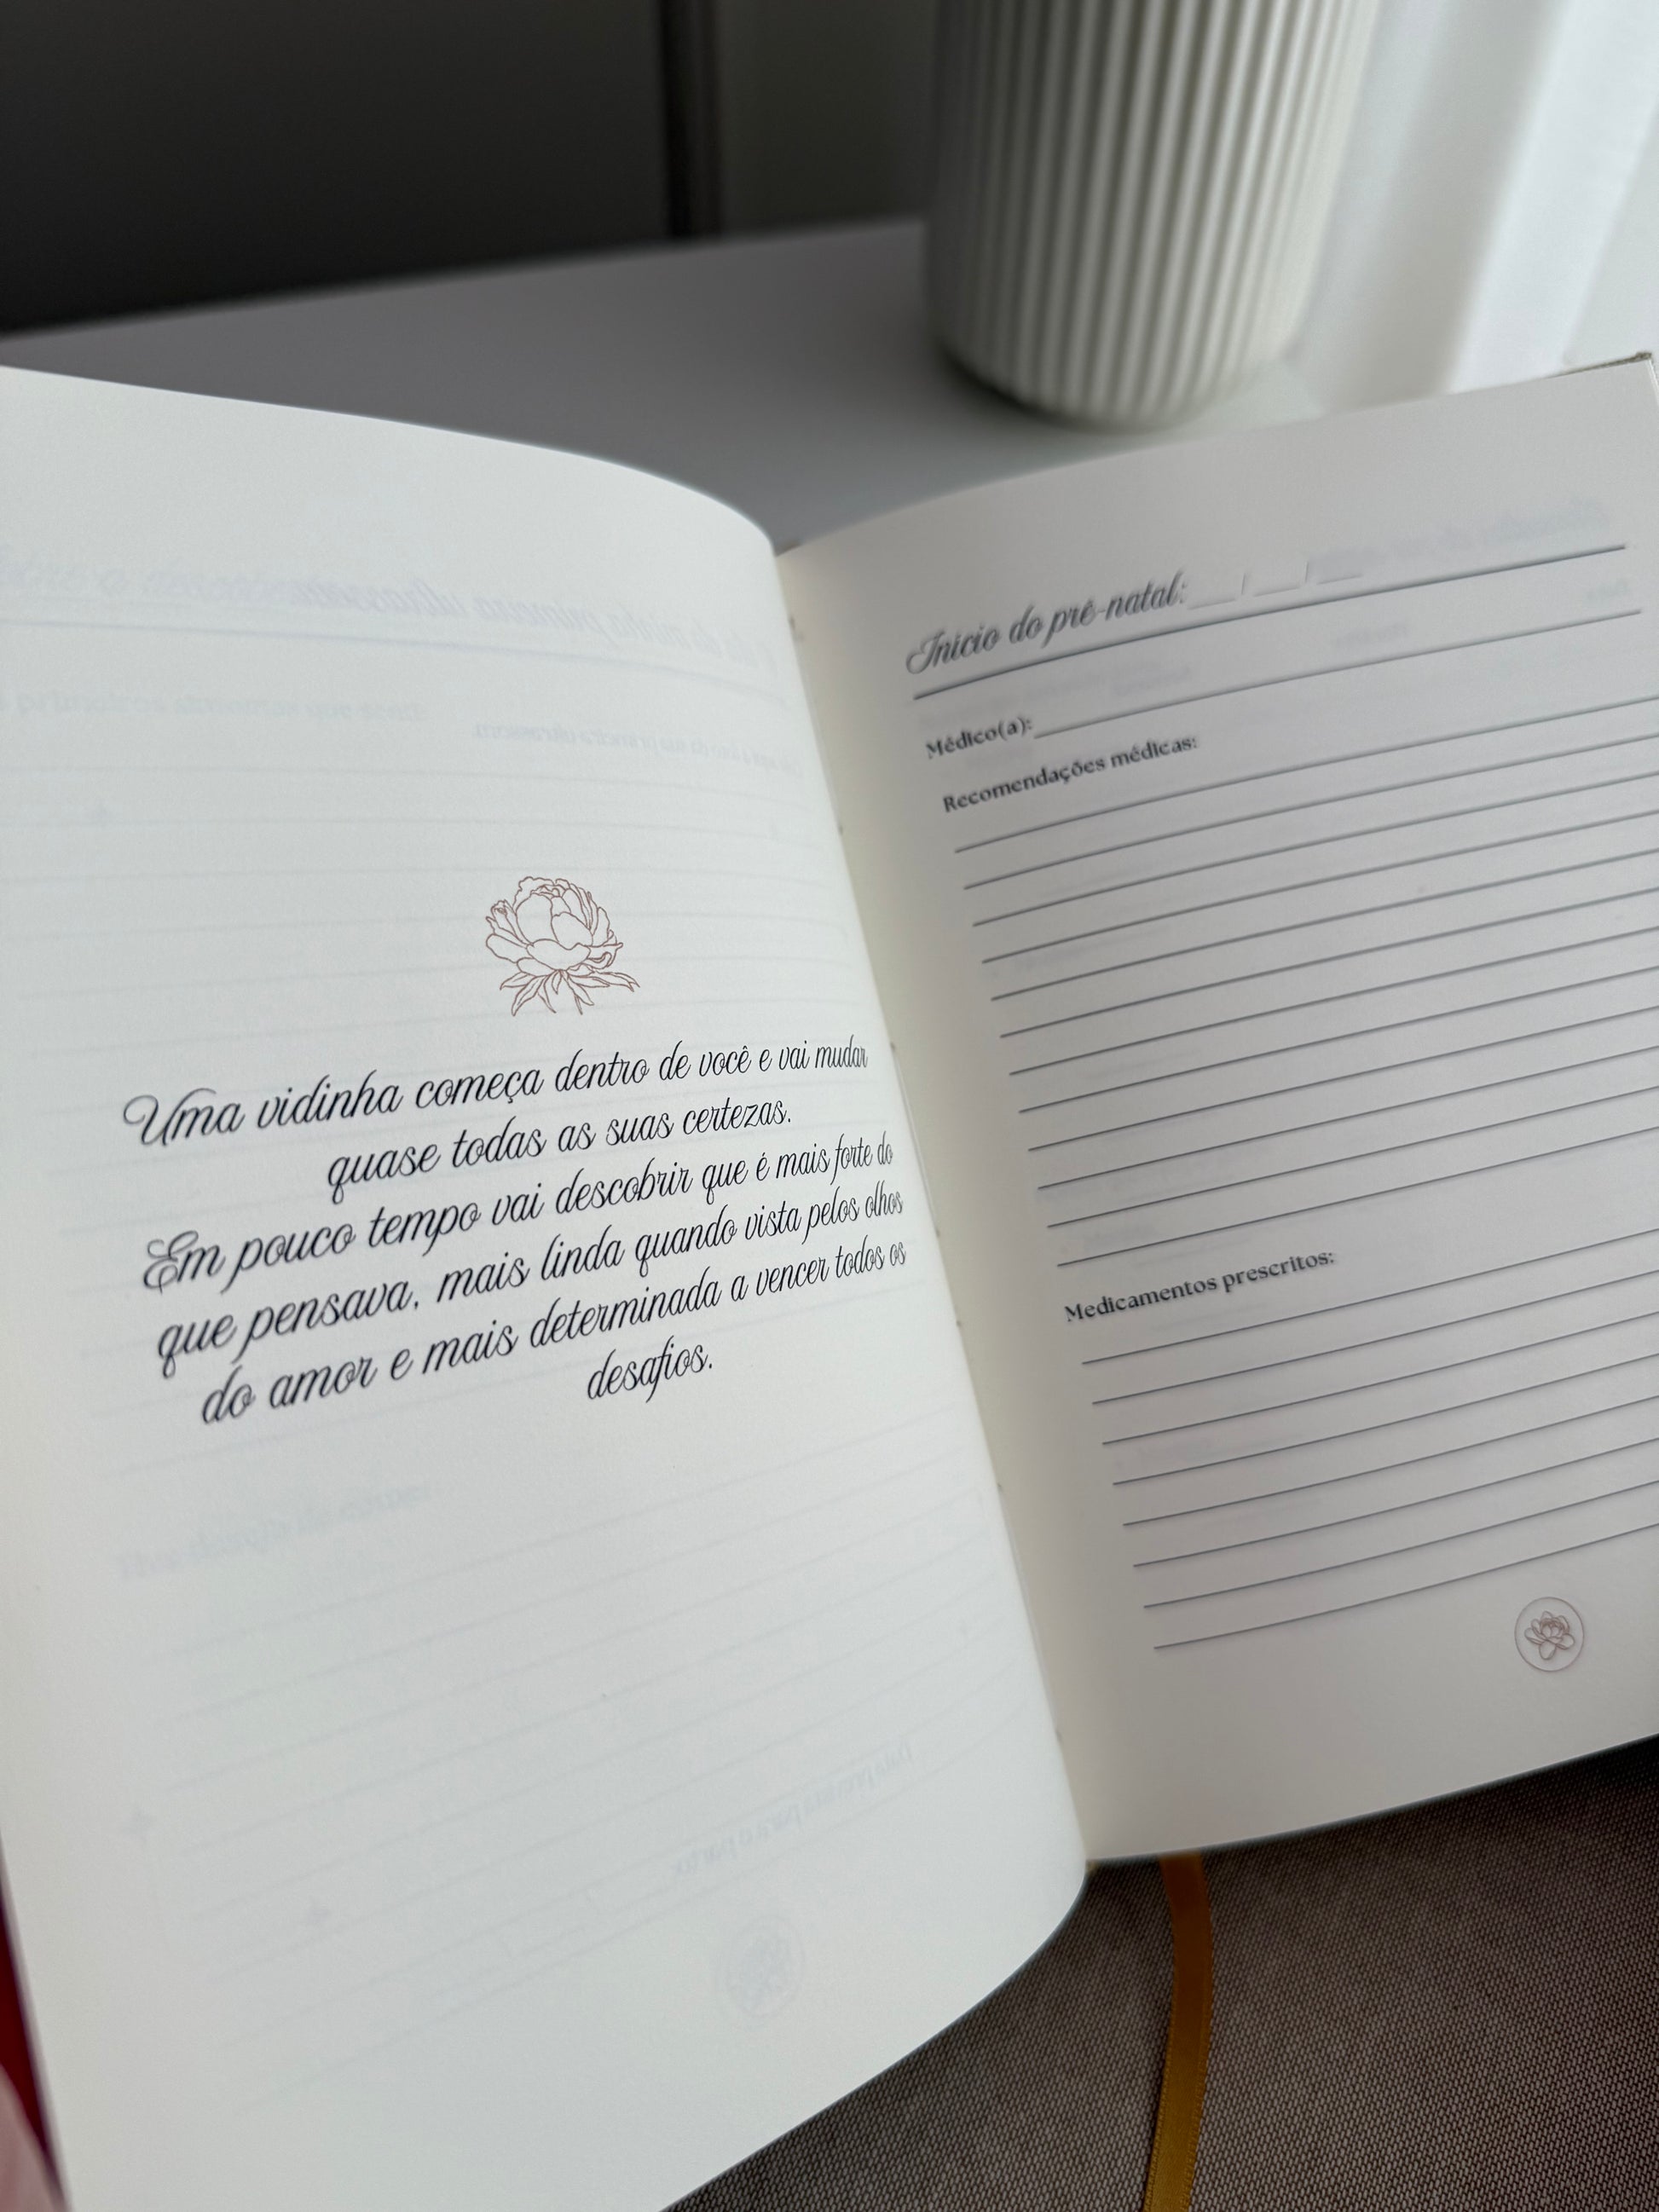 Uma vidinha começa dentro de você e vai mudar
quase todas as suas certezas.
Em pouco tempo vai descobrir que é mais forte do
que pensava, mais linda quando vista pelos olhos
do amor e mais determinada a vencer todos os
desafios.
Início do pré-natal: ___/___/___
Médico(a):
Recomendações médicas:
Medicamentos prescritos: